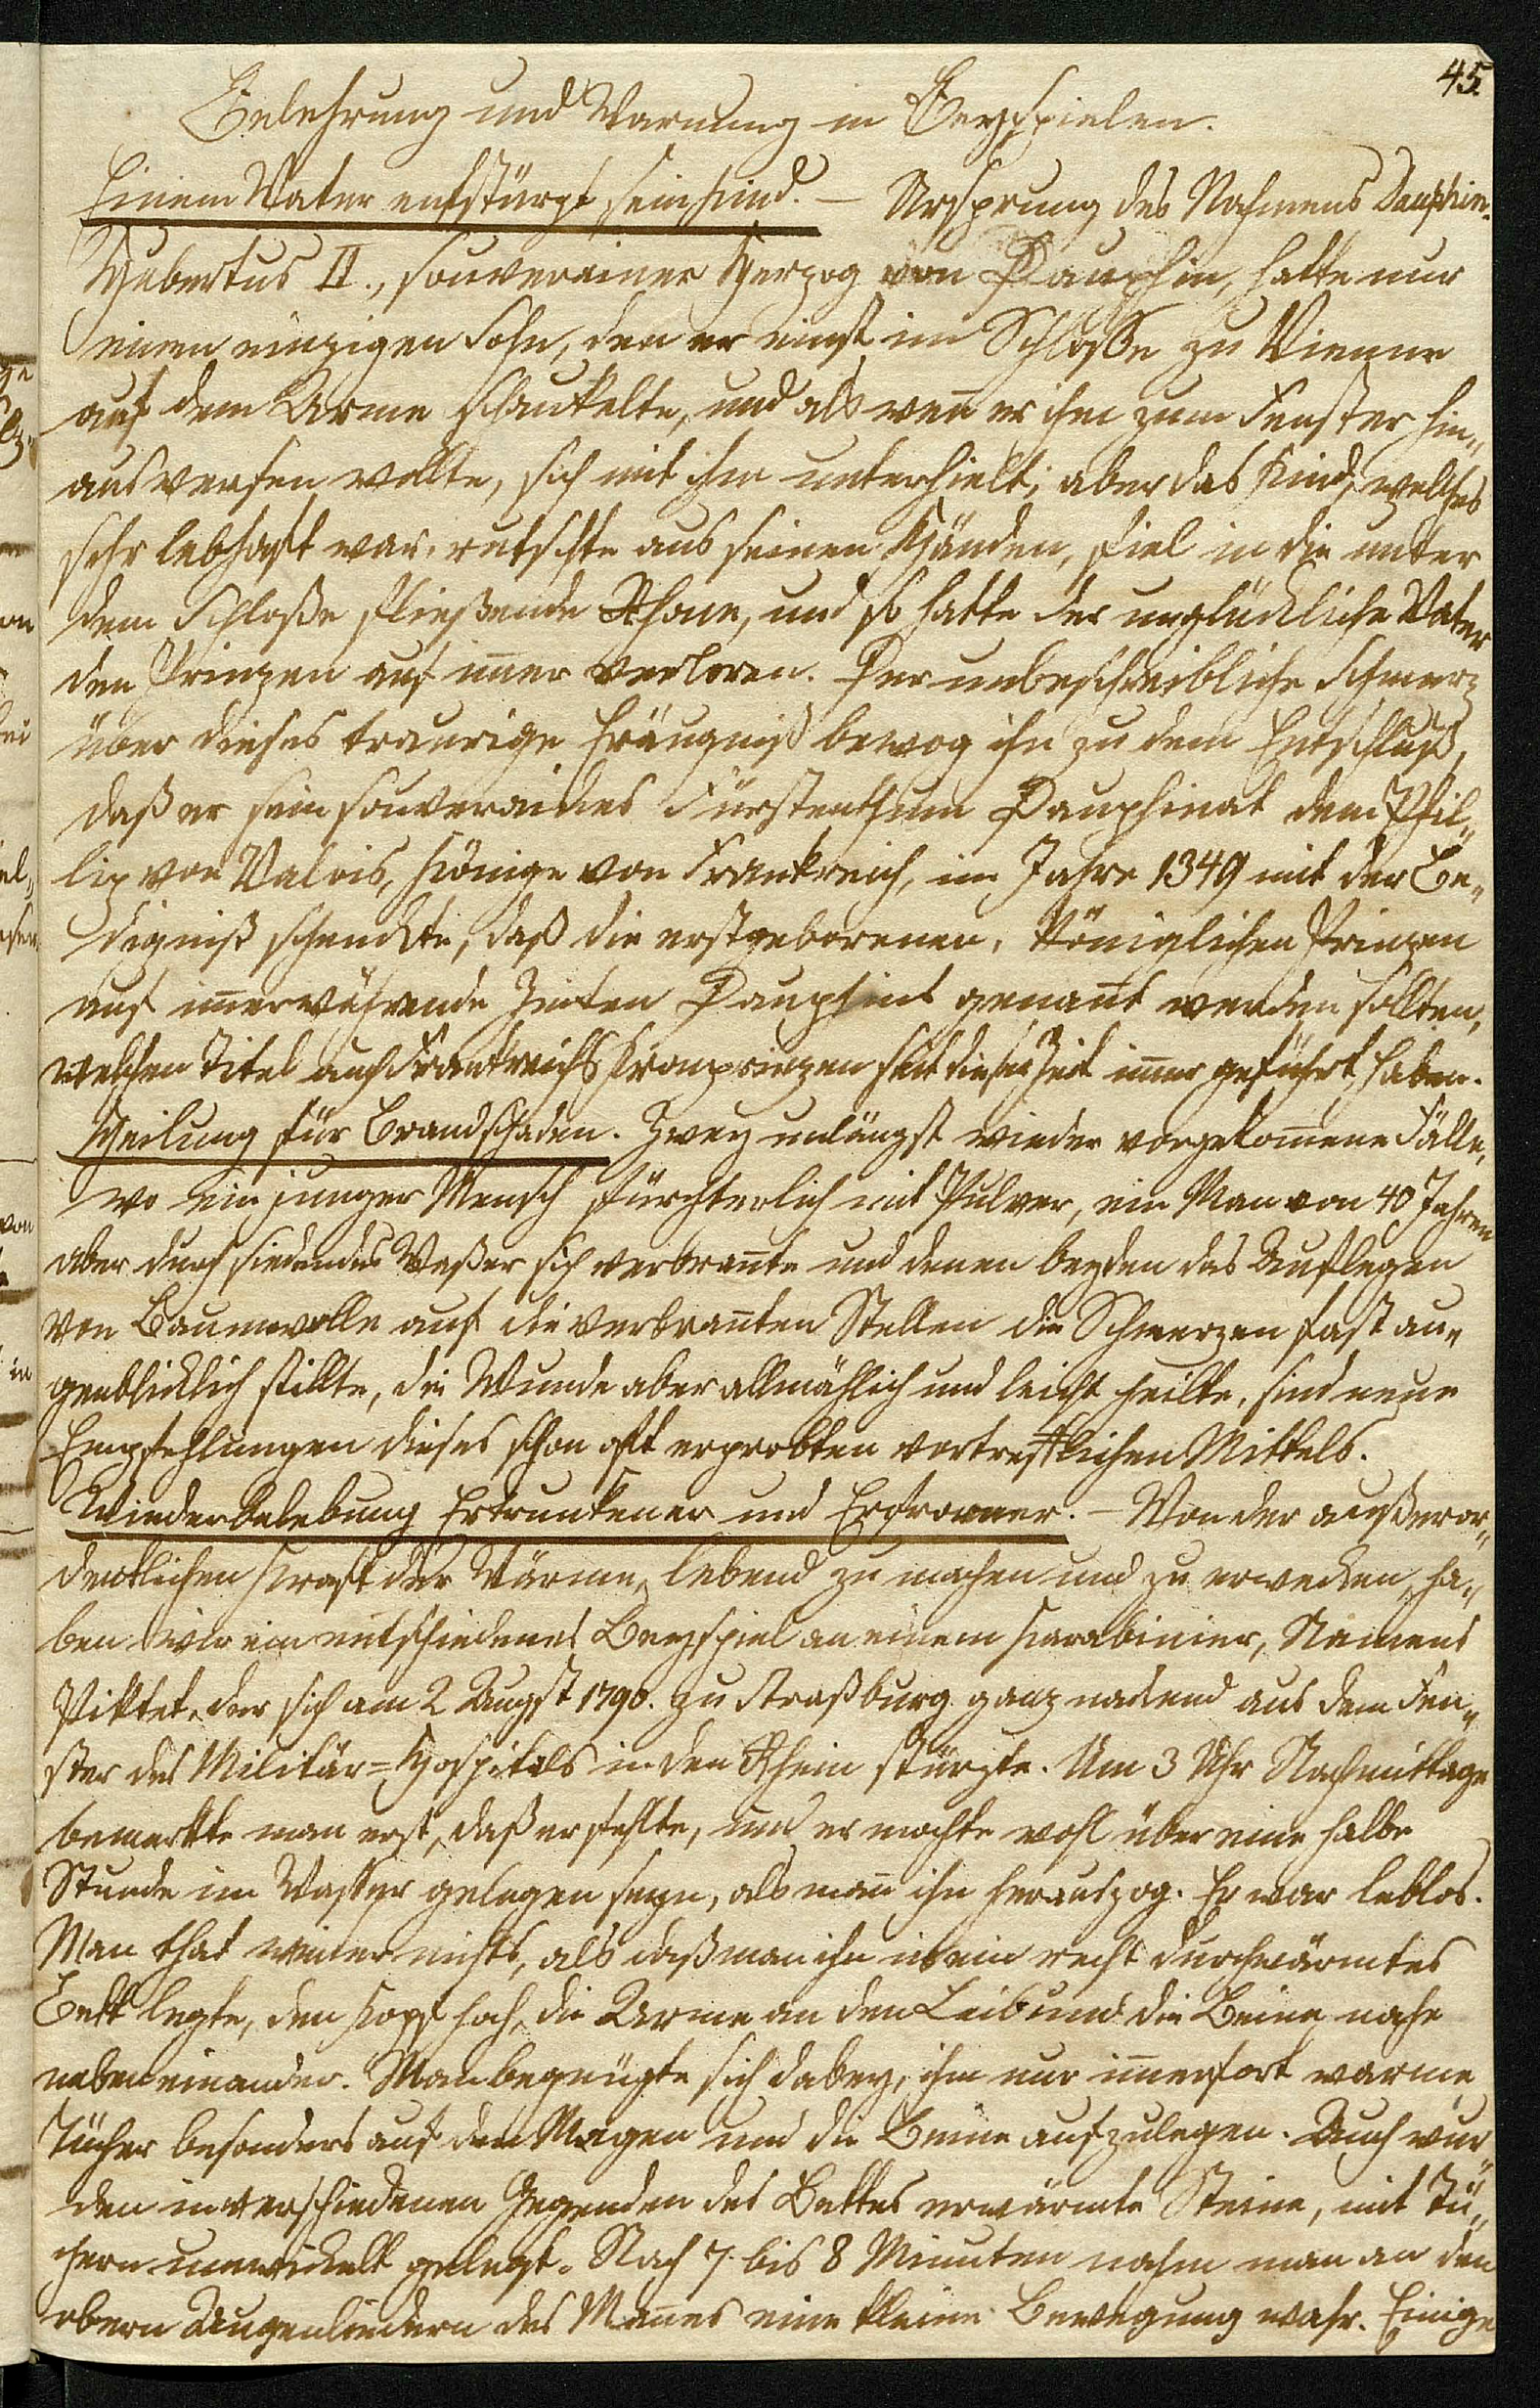 45.
Belehrung und Warnung in Beyspielen.
Einem Vater entstürzt sein Kind. — Ursprung des Nahmens Dauphin.
Hubertus II., souverainer Herzog von Dauphin, hatte nur
einen einzigen Sohn, den er einst im Schloße zu Vienne
auf dem Arme schaukelte, und als wen̄ er ihn zum Fenster hin„
auswerfen wollte, sich mit ihm unterhielt; aber das Kind, welches
sehr lebhaft war, rutschte aus seinen Händen, fiel in die unter
dem Schloße fließende Rhone, und so hatte der unglückliche Vater
den Prinzen auf im̄er verloren. Der unbeschreibliche Schmerz
über dieses traurige Eräugniß bewog ihn zu dem Entschluß,
daß er sein souveraines Fürstenthum Dauphinat dem Phil„
lip von Valois, Könige von Frankreich, im Jahre 1349 mit der Be„
digniß schenkte, daß die erstgeborenen, Königlichen Prinzen
auf im̄erwährende Zeiten Dauphins genan̄t werden sollten,
welchen Titel auch Frankreichs Kronprinzen seit dieser Zeit im̄er geführt haben.
Heilung für Brandschaden. Zwey unlängst wieder vorgekom̄ene Fälle,
wo ein junger Mensch fürchterlich mit Pulver, ein Man̄ von 40 Jahren
aber durch siedendes Waßer sich verbran̄te und denen beyden das Auflegen
von Baumwolle auf die verbran̄ten Stellen die Schmerzen fast au„
genblicklich stillte, die Wunde aber allmählich und leicht heilte, sind neue
Empfehlungen dieses schon oft erprobten vortrefflichen Mittels.
Wiederbelebung Ertrunkener und Erfrorner. — Von der außeror„
dentlichen Kraft der Wärme, lebend zu machen und zu erwecken, ha„
ben wir ein entschiedenes Beyspiel an einem Karabinier, Namens
Piktet, der sich am 2 Augst 1790. zu Straßburg ganz nackend aus dem Fen„
ster des Militär=Hospitals in den Rhein stürzte. Um 3 Uhr Nachmittage
bemerkte man erst, daß er fehlte, und er mochte wohl über eine halbe
Stunde im Wasser gelegen seyn, als man̄ ihn herauszog. Er war leblos.
Man that weiter nichts, als daß man ihn in ein recht durchwärmtes
Bett legte, den Kopf hoch, die Arme an den Leib und die Beine nahe
neben einander. Man begnügte sich dabey, ihm nur im̄erfort warme
Tücher besonders auf den Magen und die Beine aufzulegen. Auch wur„
den in verschiedenen Gegenden des Bettes erwärmte Steine, mit Tü„
chern umwickelt gelegt. Nach 7 bis 8 Minuten nahm man an den
obern Augenliedern des Man̄es eine kleine Bewegung wahr. Einige